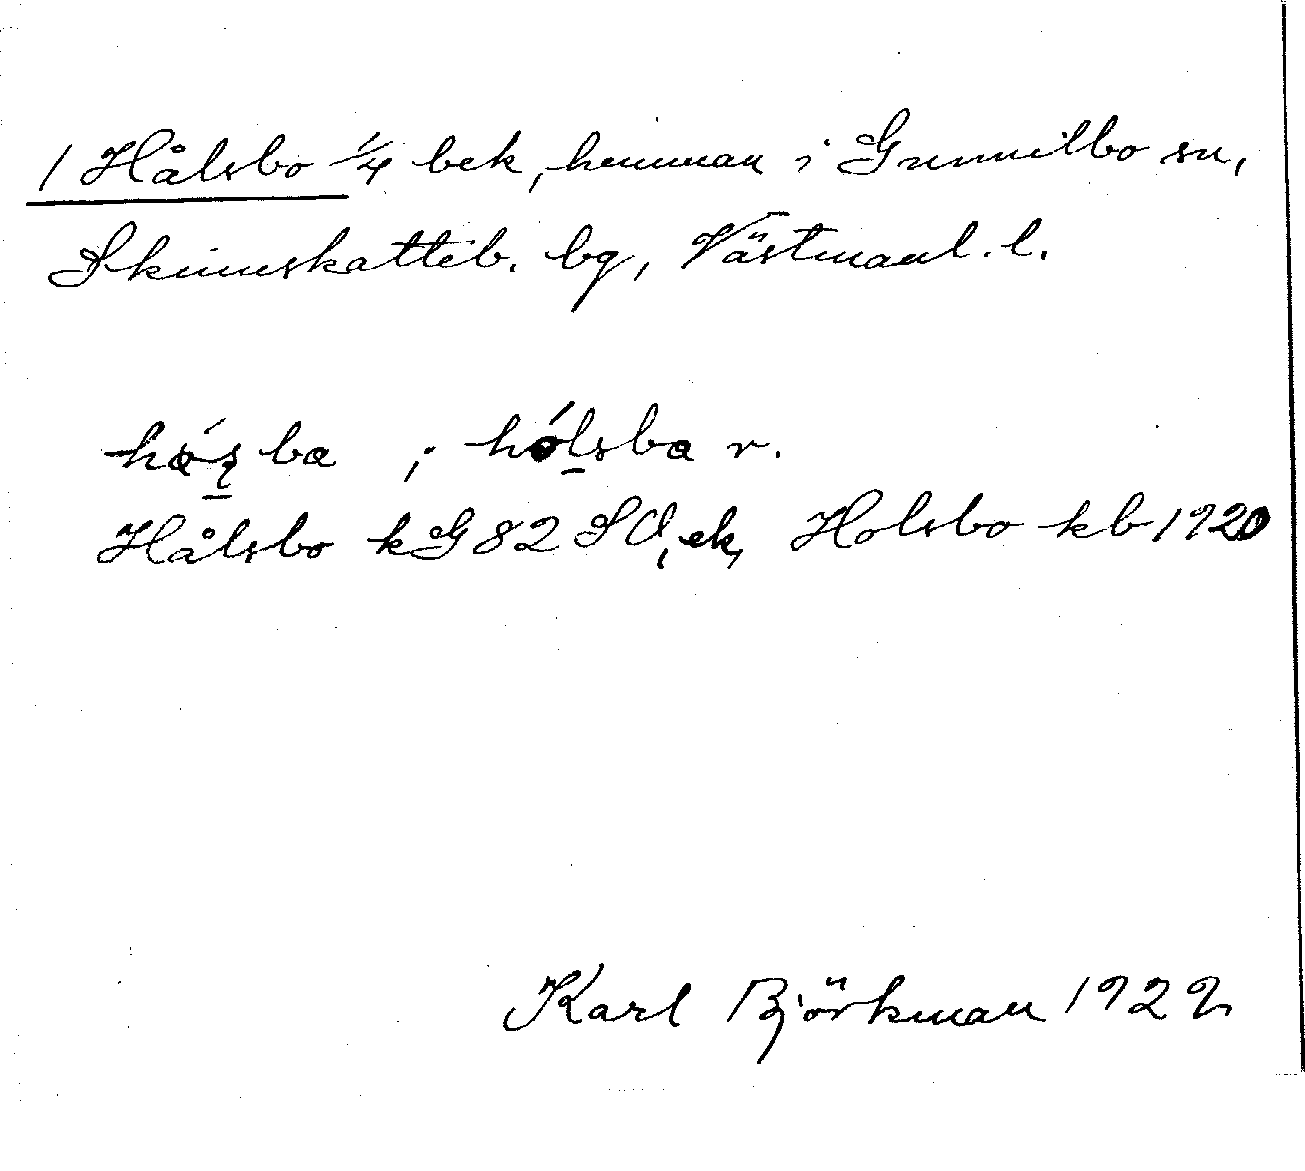 1 Hålsbo 1/4 bek, hemman i Gunnilbo sn,
Skinnskatteb. bg, Västmanl. l.
hólsba r.
Hålsbo kG 82 SO, ek, Holsbo kb 1920
Karl Björkman 1922